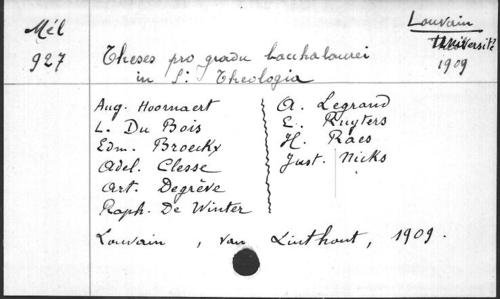 Mél
927
Louvain
Université
1909
Theses pro gradu bacchalaurei
in S: Theologia
Aug. Hoornaert
L. Du Bois
Edm. Broeckx
Adel. Clesse
Art. Degrève
Raph. De Winter
A. Legrand
E. Ruyters
H. Raes
Just. Nicks
Louvain , Van Linthout, 1909.